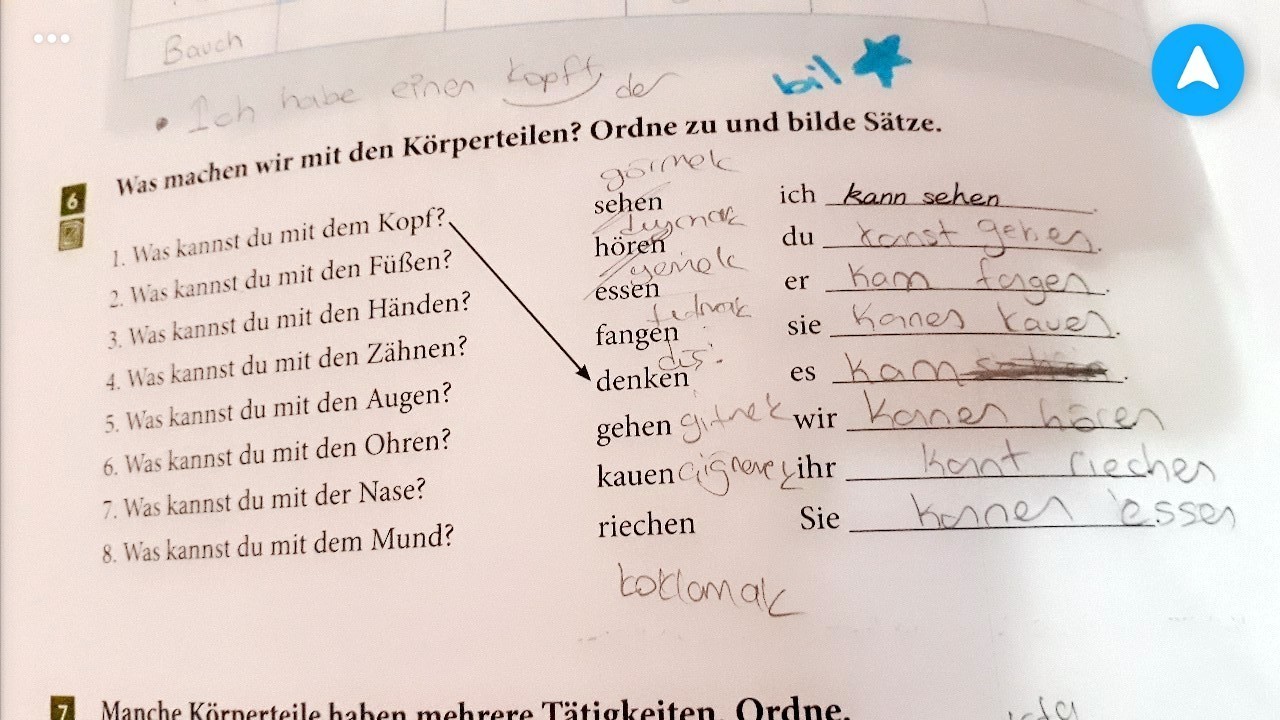 Bauch
• Ich habe einen Kopft der
bil
6 Was machen wir mit den Körperteilen? Ordne zu und bilde Sätze.
görmek
1. Was kannst du mit dem Kopf? sehen ich kann sehen.
duymak
2. Was kannst du mit den Füßen? hören du kanst gehen.
yemek
3. Was kannst du mit den Händen? essen er kann fangen.
4. Was kannst du mit den Zähnen? fangen sie kanen kauen.
düş.
5. Was kannst du mit den Augen? denken es kann.
6. Was kannst du mit den Ohren? gehen gitmek wir kannen hören
7. Was kannst du mit der Nase? kauen çiğnemek ihr kannt riechen
8. Was kannst du mit dem Mund? riechen Sie kannen essen
koklamak
7 Manche Körperteile haben mehrere Tätigkeiten. Ordne.